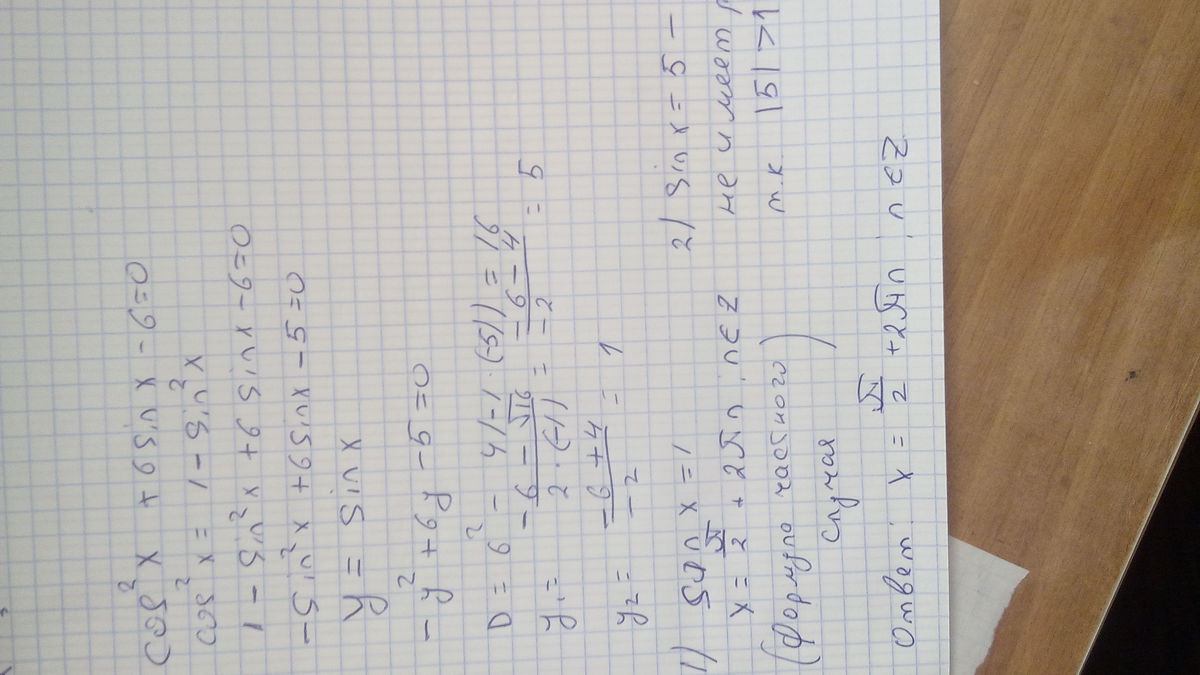 cos²x + 6sin x - 6 = 0
cos²x = 1 - sin²x
1 - sin²x + 6 sin x - 6 = 0
-sin²x + 6sinx - 5 = 0
y = sin x
-y² + 6y - 5 = 0
D = 6² - 4(-1·(-5)) = 16
y₁ = (-6 - √16)/(2·(-1)) = (-6 - 4)/(-2) = 5
y₂ = (-6 + 4)/(-2) = 1
1) sin x = 1
x = π/2 + 2πn, n ∈ Z
(формула частного
случая)
2) sin x = 5 -
не имеет
т.к |5| > 1
Ответ: x = π/2 + 2πn, n ∈ Z